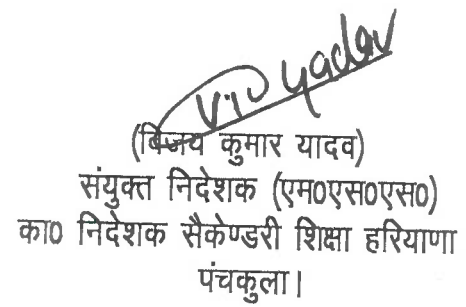 Vij Yadav
(विजय कुमार यादव)
संयुक्त निदेशक (एम0एस0एस0)
का0 निदेशक सैकेण्डरी शिक्षा हरियाणा
पंचकुला।